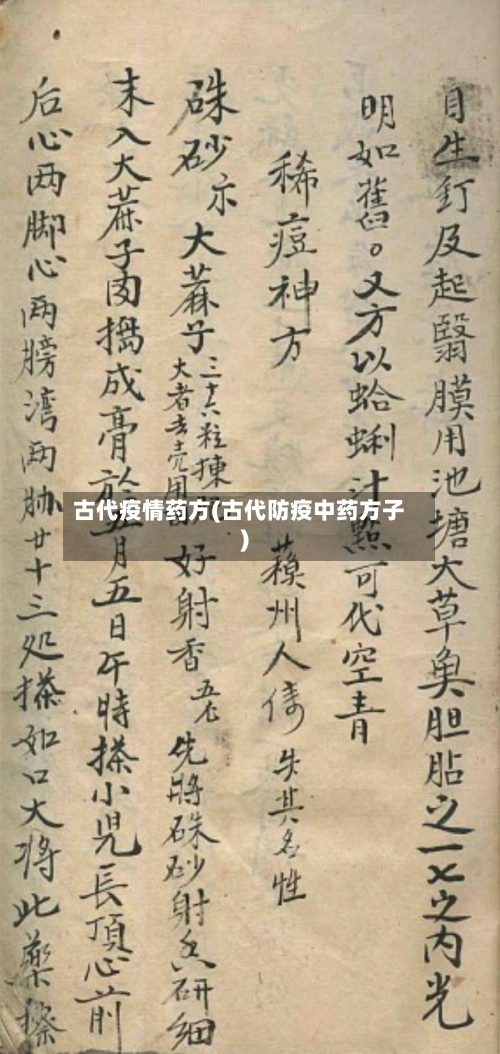 目生釘及起翳膜用池搪大草奐胆貼之一七之内光
明如舊。又方以蛤蜊汁點可代空青
稀痘神方 蘓州人傳失其名性
硃砂 大蔴子三十六粒揀大者去壳用 好射香 先將硃砂射香研細
末入大蔴子肉搗成膏於五月五日午時搽小児長頂心前
后心两脚心两膀湾两 廿十三処搽如口大将此藥搽
古代疫情药方(古代防疫中药方子
)